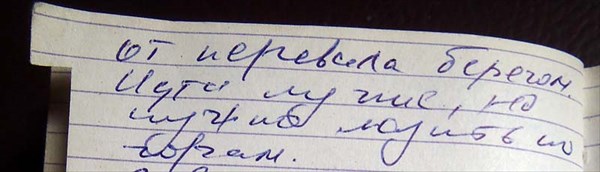 от перевала берегом.
Идти лучше, но
нужно лазить по
горам.